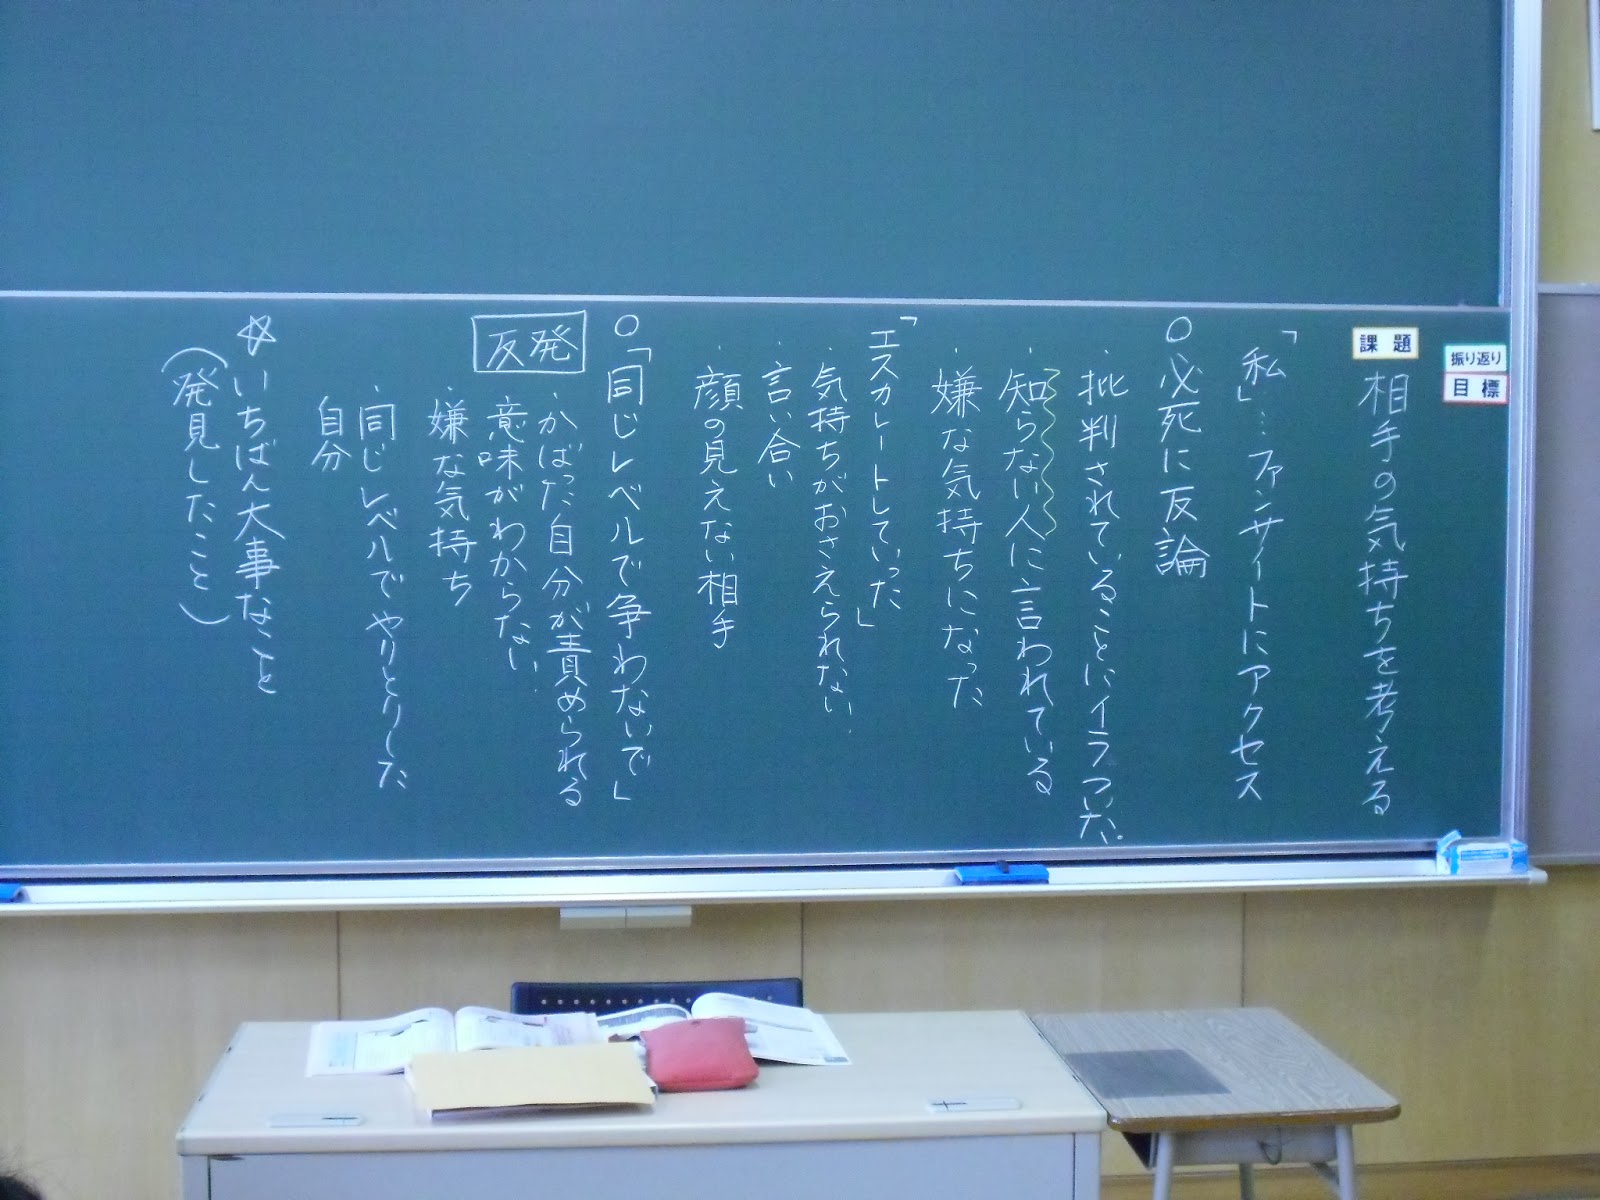 振り返り
目標
課題
相手の気持ちを考える
「私」…ファンサイトにアクセス
○必死に反論
・批判されていることにイラついた。
・知らない人に言われている
・嫌な気持ちになった
「エスカレートしていった」
・気持ちがおさえられない、
・言い合い
・顔の見えない相手
○「同じレベルで争わないで」
反発
・かばった自分が責められる
意味がわからない、
・嫌な気持ち
・同じレベルでやりとりした
自分
☆いちばん大事なこと
(発見したこと)